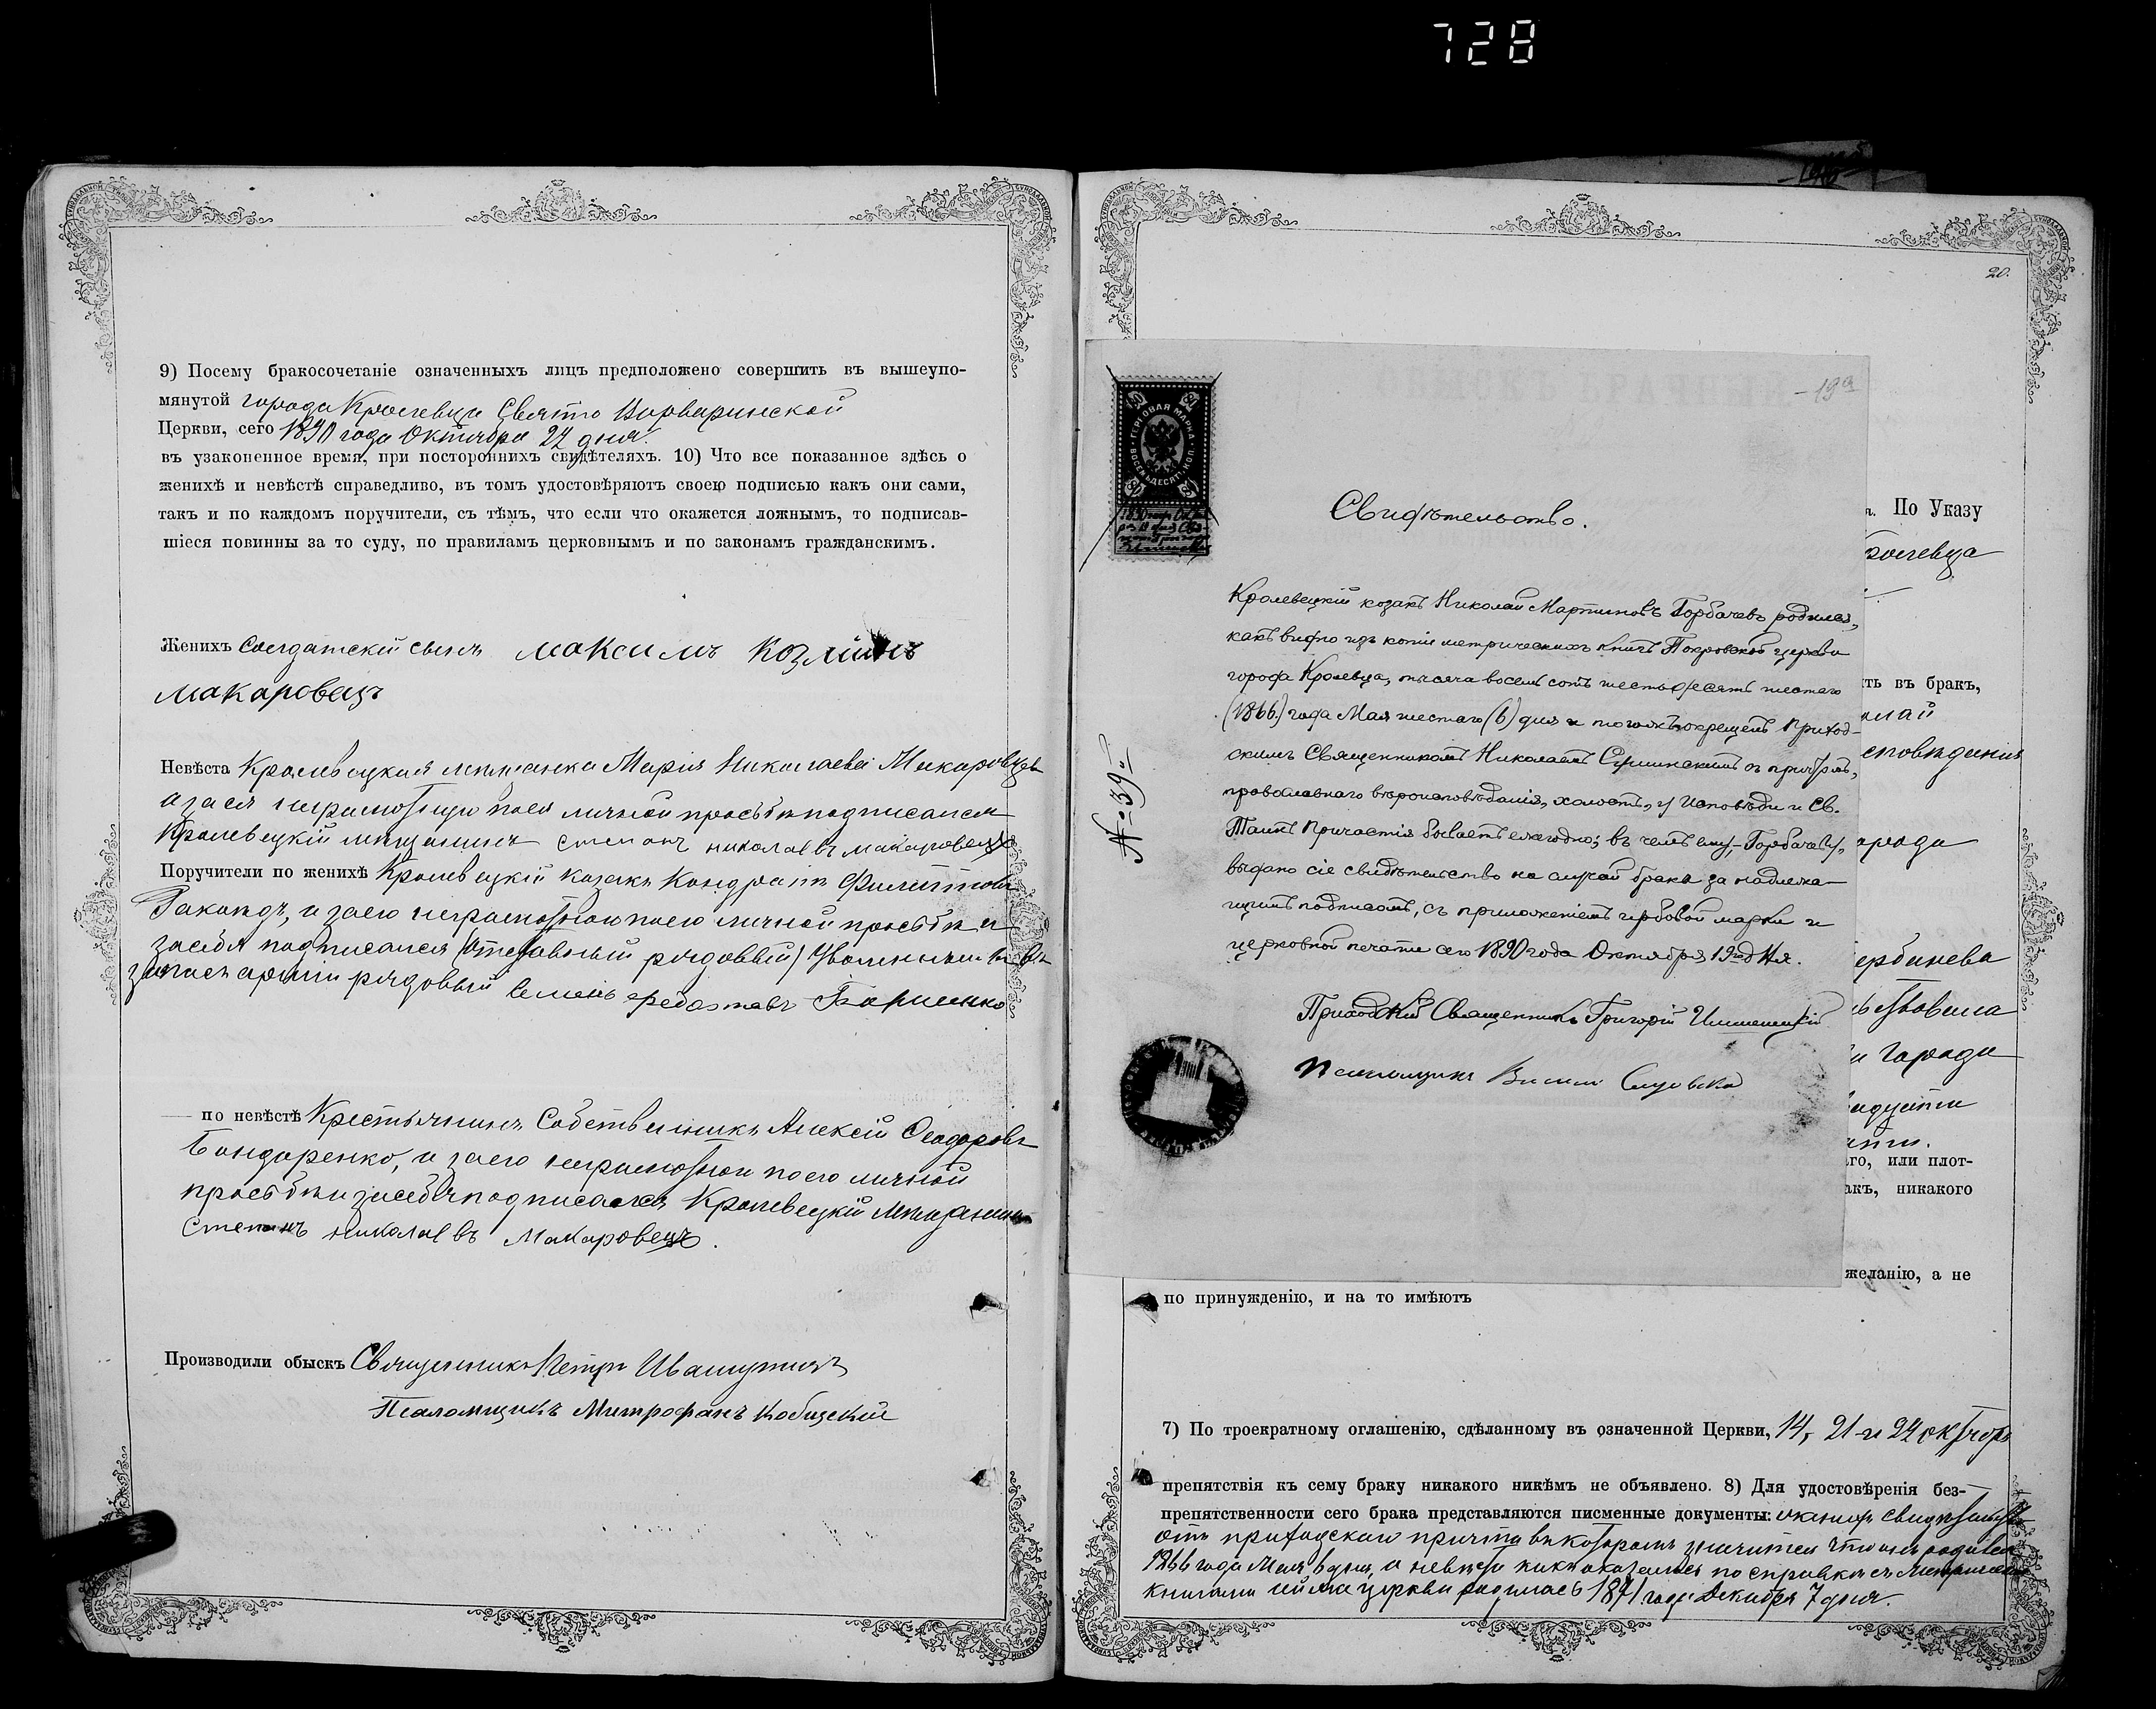 728
9) Посему бракосочетаніе означенныхъ лицъ предположено совершить въ вышеупо-
мянутой города Кролевца Свято Варваринской
Церкви, сего 1890 года Октября 24 дня.
въ узаконенное время, при постороннихъ свидѣтеляхъ. 10) Что все показанное здѣсь о
женихѣ и невѣстѣ справедливо, въ томъ удостовѣряютъ своею подписью какъ они сами,
такъ и по каждомъ поручители, съ тѣмъ, что если что окажется ложнымъ, то подписав-
шіеся повинны за то суду, по правиламъ церковнымъ и по законамъ гражданскимъ.
Женихъ Солдатскій сынъ Максимъ Козминъ
Макаровецъ
Невѣста Кролевецкая мѣщанка Марія Николаева Макаровцева
а за ея неграмотную по ея личной просьбѣ подписался
Кролевецкій мѣщанинъ Степанъ Николаевъ Макаровецъ
Поручители по женихѣ Кролевецкій казакъ Кондратъ Филиповъ
и за его неграмотного по его личной просьбѣ и
за себя подписался (Отставный рядовый) Уволенный въ
запасъ арміи рядовый Борисенко
по невѣстѣ Крестьянинъ Собственникъ Алексій Ѳеодоровъ
Бондаренко, и за его неграмотного по его личной
просьбѣ и за себя подписался Кролевецкій мѣщанинъ
Степанъ Николаевъ Макаровецъ.
Производили обыскъ Священникъ Петръ
Псаломщикъ Митрофанъ
20.
19а
ГЕРБОВАЯ МАРКА
ВОСЕМЬДЕСЯТЪ КОП.
№ 39
Свидѣтельство.
Кролевецкій козакъ Николай Мартиновъ Горбачевъ родился,
какъ видно изъ копіи метрическихъ книгъ Покровской церкви
города Кролевца, тысяча восемь сотъ шестьдесятъ шестаго
(1866.) года Мая шестаго (6) дня и тогожъ окрещенъ Приход-
скимъ Священникомъ Николаемъ съ причтомъ,
православнаго вѣроисповѣданія, холостъ, у Исповѣди и Св.
Таинъ Причастія бываетъ ежегодно; въ чемъ ему, Горбачеву,
выдано сіе свидѣтельство на случай брака за надлежа-
щимъ подписомъ, съ приложеніемъ гербовой марки и
церковной печати сего 1890 года Октября 19 дня.
Приходскій Священникъ Григорій
Псаломщикъ
По Указу
въ бракъ,
исповѣданія
города
города
или плот-
никакого
желанію, а не
по принужденію, и на то имѣютъ
7) По троекратному оглашенію, сдѣланному въ означенной Церкви, 14, 21 и 24 октября
препятствія къ сему браку никакого никѣмъ не объявлено. 8) Для удостовѣренія без-
препятственности сего брака представляются писменные документы:
отъ приходскаго причта въ которомъ значится что онъ родился
1866 года Мая 6 дня, а невѣста какъ оказалось по справкѣ съ
книгами церкви родилась 1871 года Декабря 7 дня.